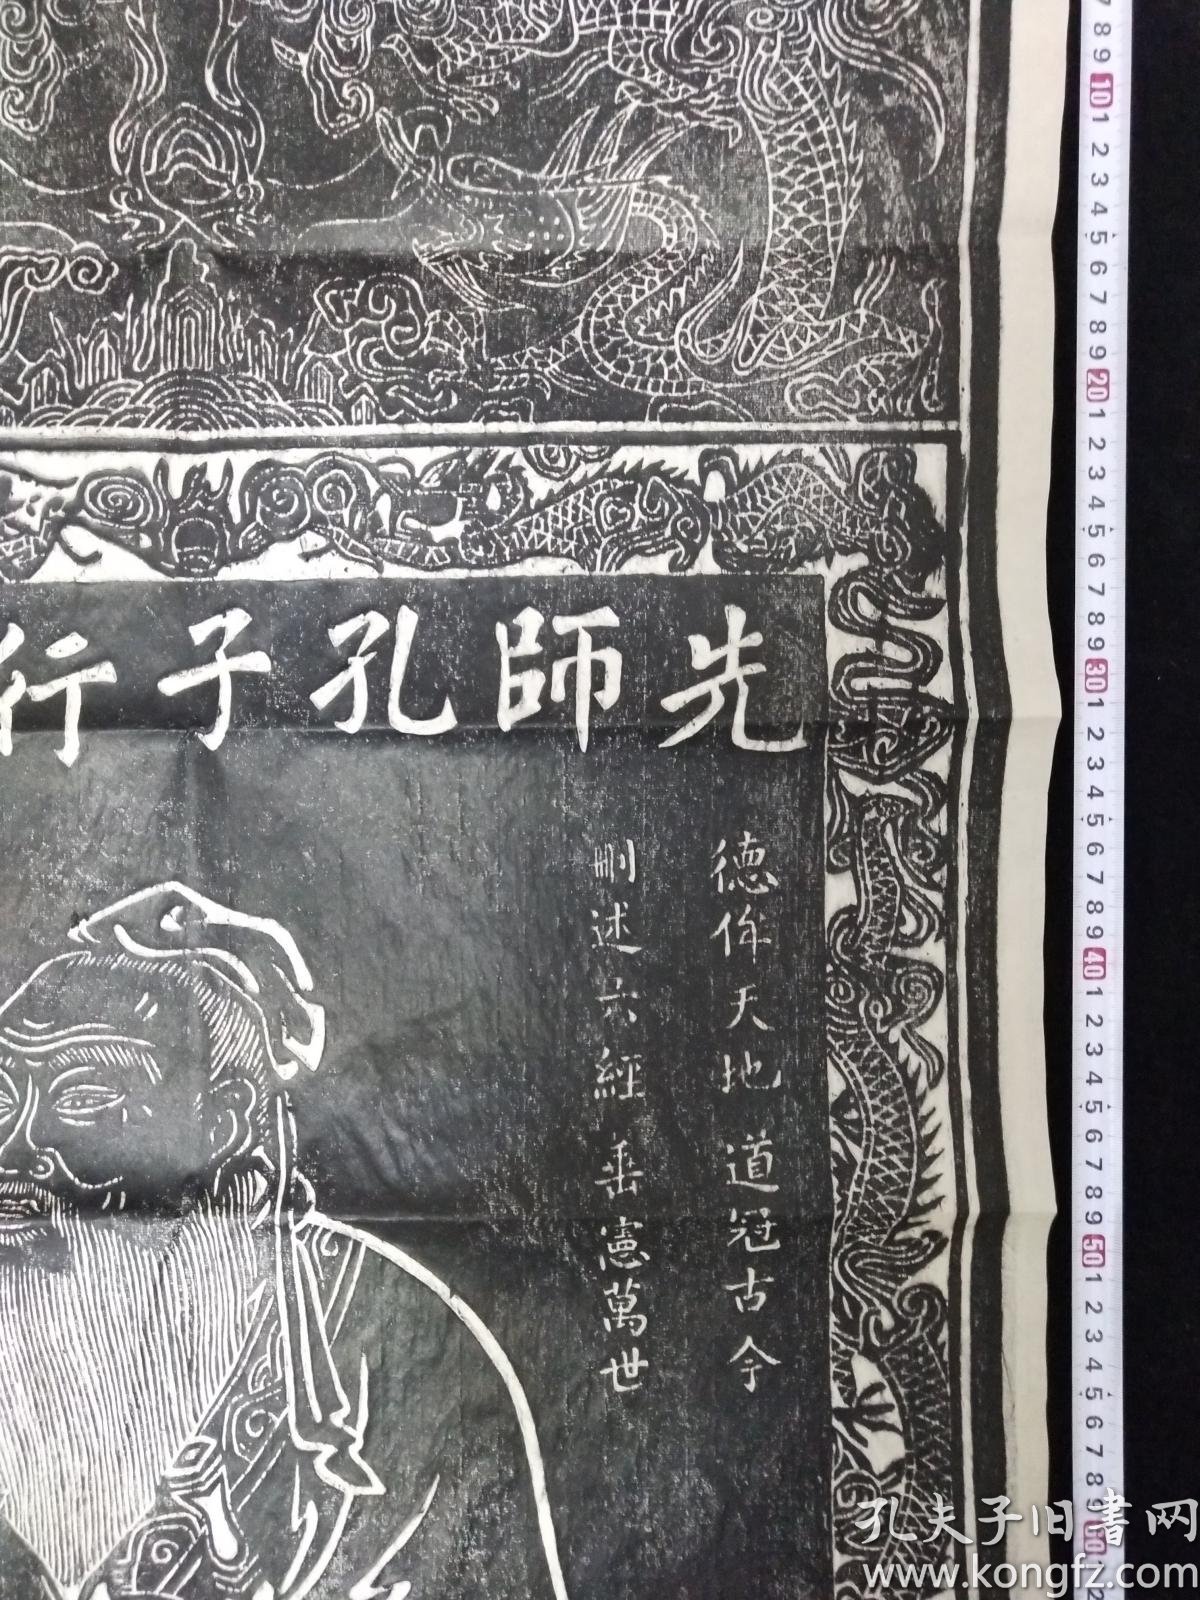 先師孔子行
德侔天地道冠古今
刪述六經垂憲萬世
7 8 9 10 1 2 3 4 5 6 7 8 9 20 1 2 3 4 5 6 7 8 9 30 1 2 3 4 5 6 7 8 9 40 1 2 3 4 5 6 7 8 9 50 1 2 3 4 5 6 7 8 9 60 1 2
孔夫子旧書网
www.kongfz.com